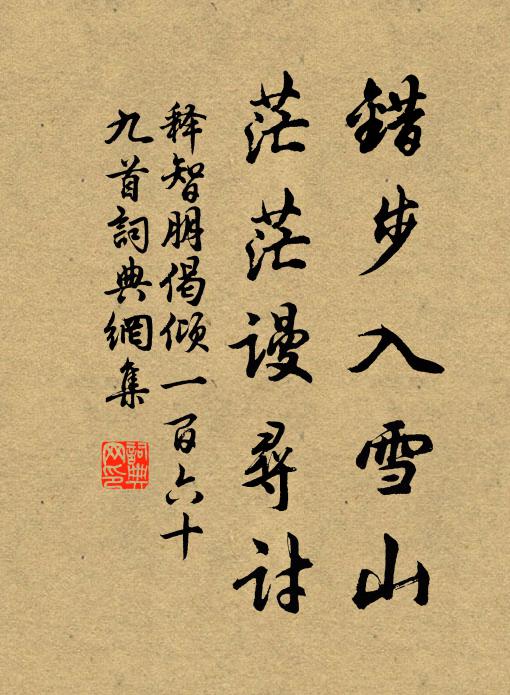 錯步入雪山
茫茫謾尋討
释智朋偈傾一百六十
九首詞典網集
詞典
网印